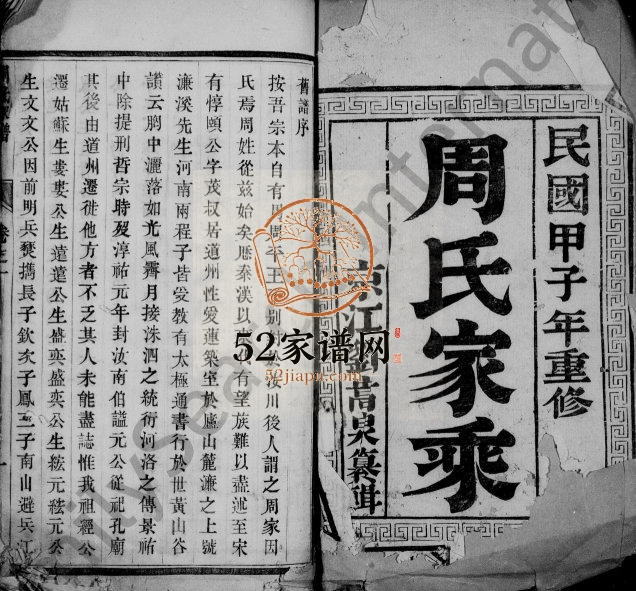 民國甲子年重修
周氏家乘
江
萬泉纂輯
舊譜序
按吾宗本自有周 王 別 汝川後人謂之周家因
氏焉周姓從兹始矣歷秦漢以 有望族難以盡述至宋
有惇頤公字茂叔居道州性愛蓮築室於廬山麓濂之上號
濂溪先生河南兩程子皆受教有太極通書行於世黃山谷
讚云胸中灑落如光風霽月接洙泗之統衍河洛之傳景祐
中除提刑哲宗時 淳祐元年封汝南伯謚元公從祀孔廟
其後由道州遷徙他方者不乏其人未能盡誌惟我祖經公
遷姑蘇生婁婁公生遠遠公生盛奕盛奕公生紘元紘元公
生文文公因前明兵燹攜長子欽次子鳳三子南山避兵江
卷之一
52家谱网
52jiapu.com